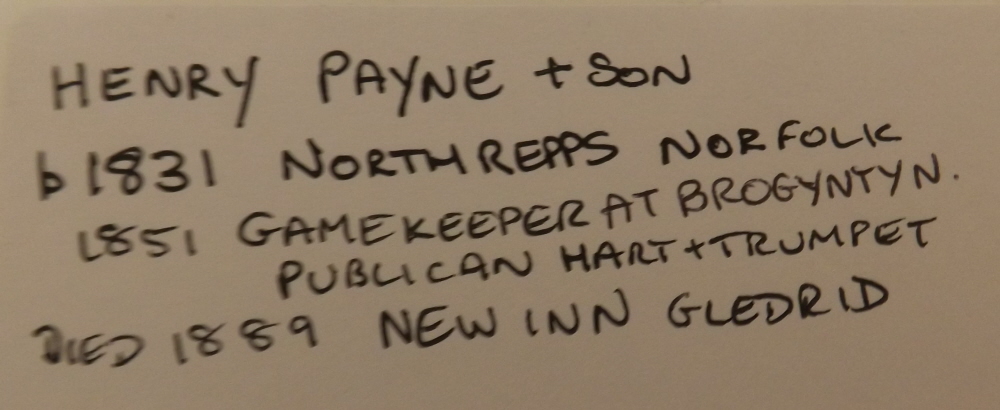 HENRY PAYNE + SON
b 1831 NORTHREPPS NORFOLK
1851 GAMEKEEPER AT BROGYNTYN.
PUBLICAN HART + TRUMPET
DIED 1889 NEW INN GLEDRID